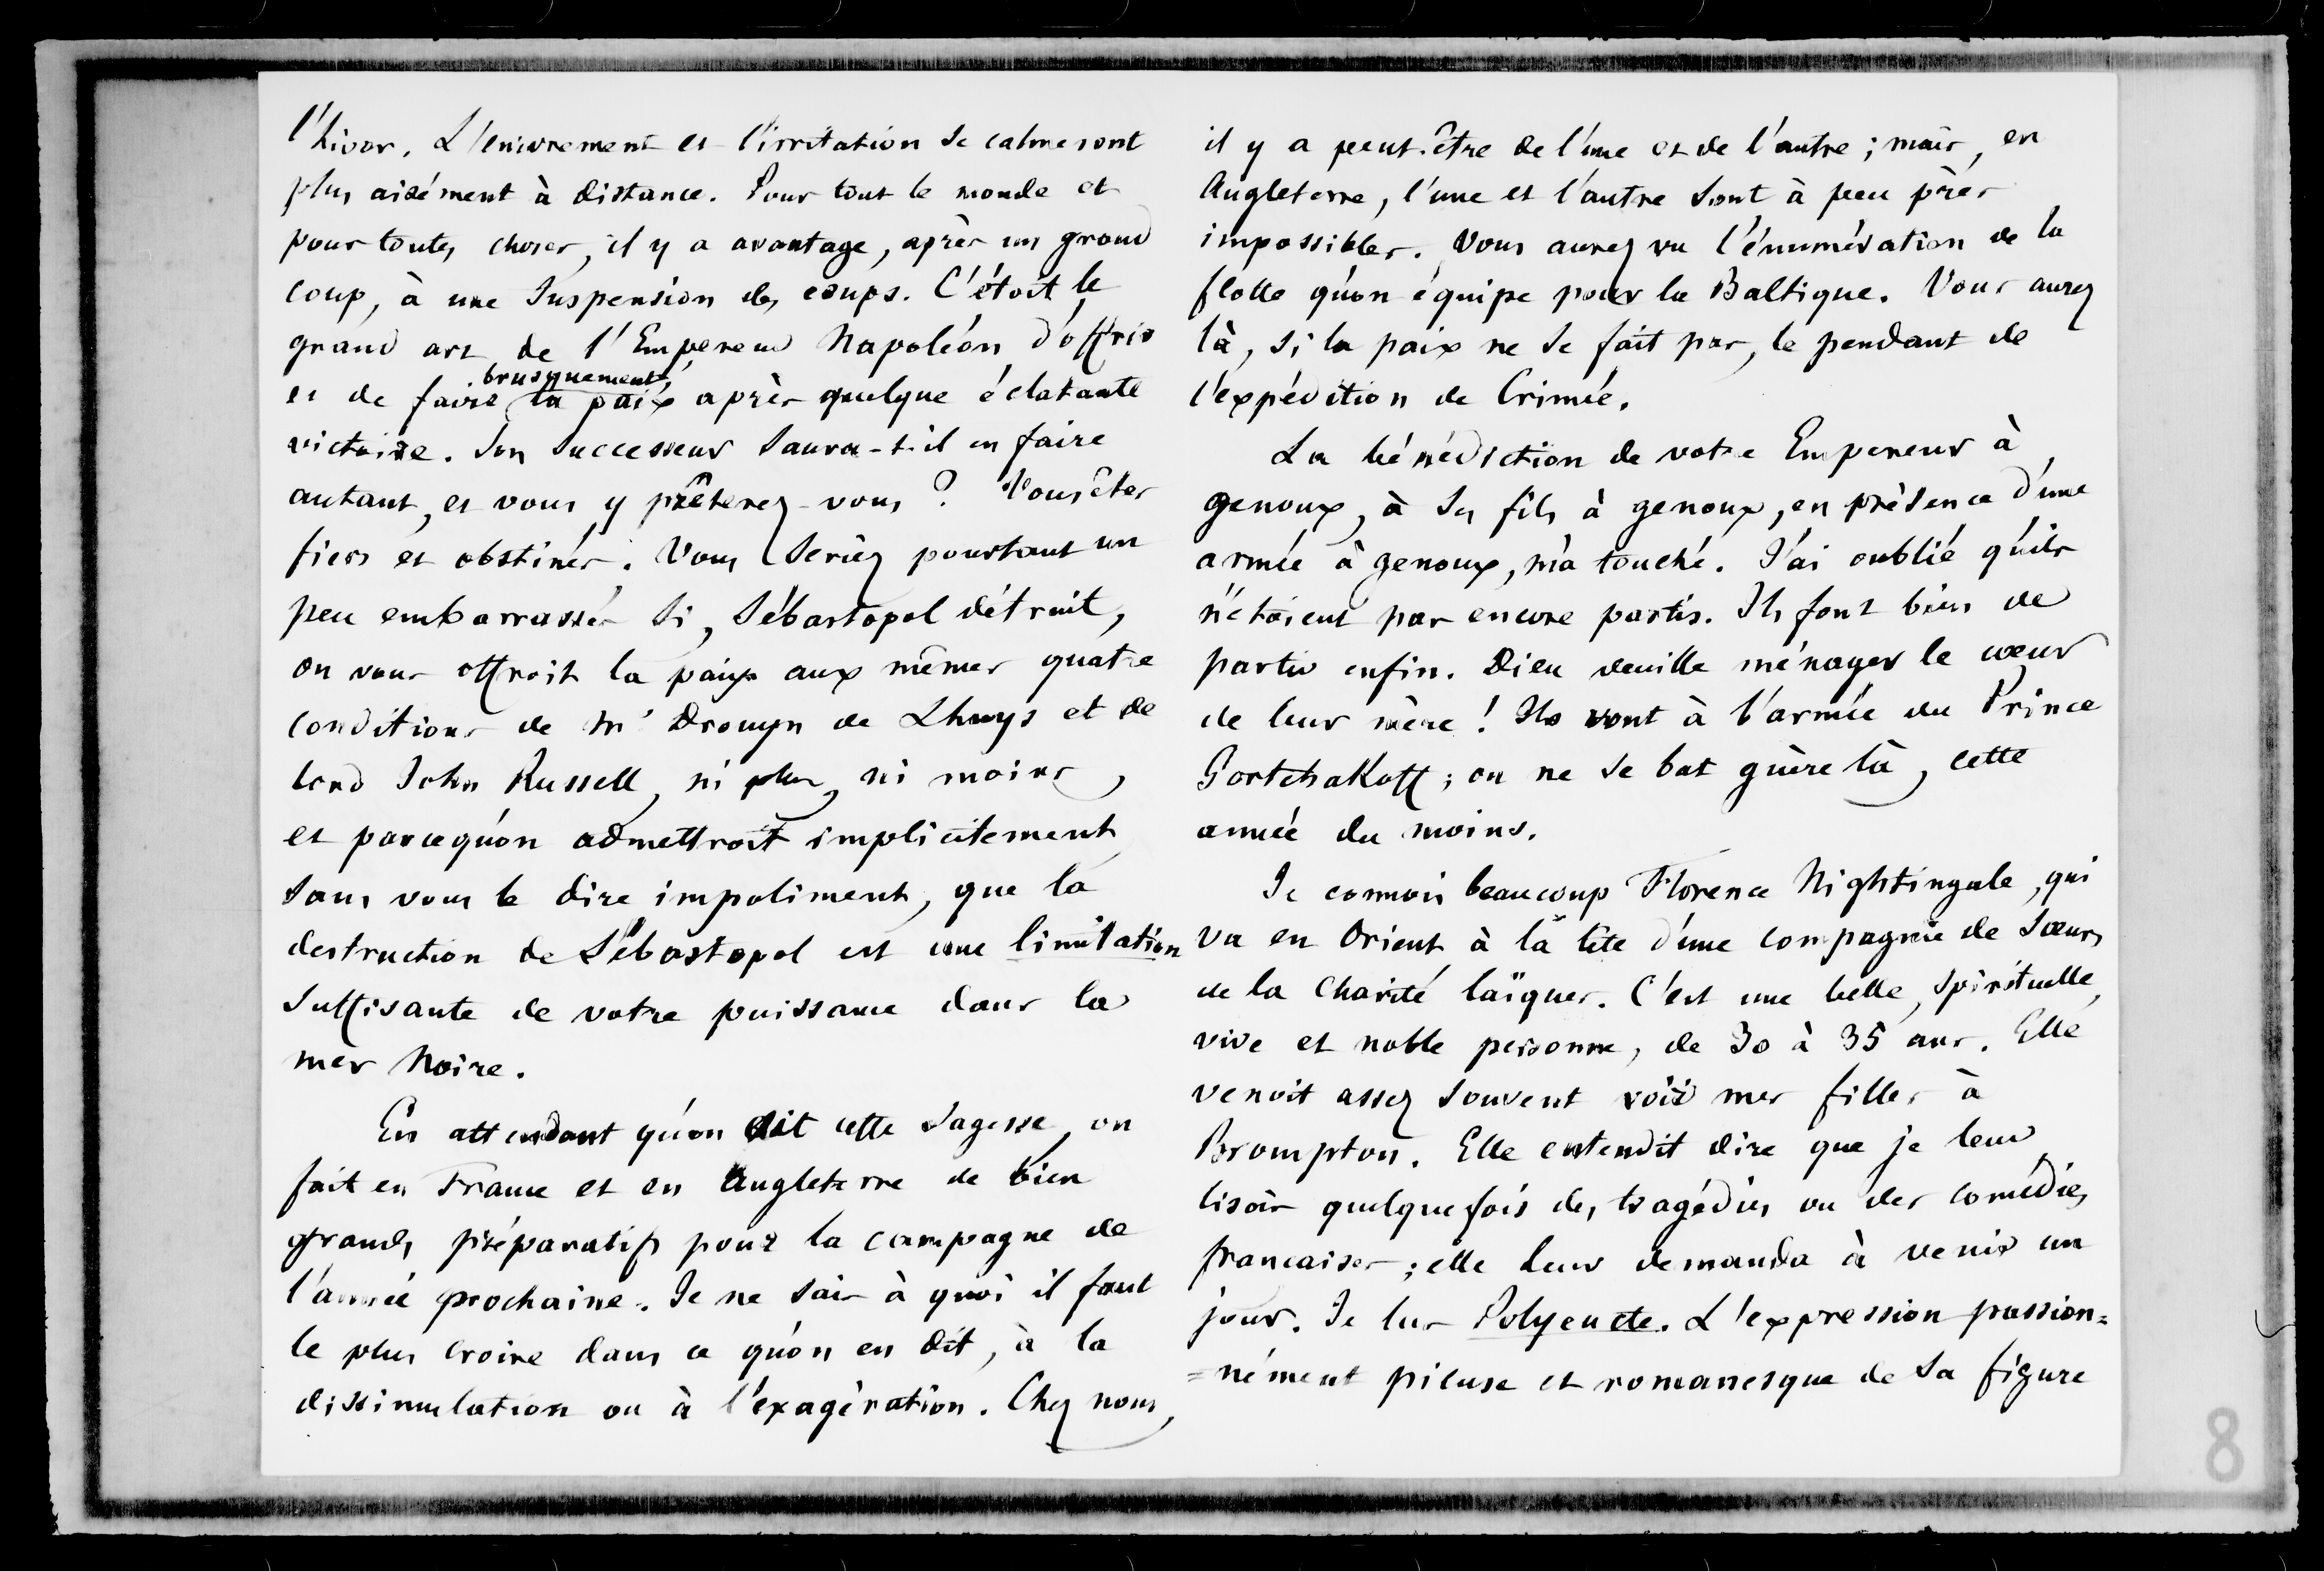 l'hiver. L'enivrement et l'irritation se calmeront
plus aisément à distance. Pour tout le monde et
pour toutes choses, il y a avantage, après un grand
coup, à une suspension des coups. C'étoit le
grand art de l'Empereur Napoléon d'offrir
brusquement
et de faire la paix après quelque éclatante
victoire. Son successeur saura-t-il en faire
autant, et vous y prêterez-vous ? Vous êtes
fiers et obstinés. Vous seriez pourtant un
peu embarrassés si, Sébastopol détruit,
on vous offroit la paix aux mêmes quatre
conditions de Mr Drouyn de Lhuys et de
lord John Russell, ni plus, ni moins,
et parcequ'on admettroit implicitement
sans vous le dire impoliment, que la
destruction de Sébastopol est une limitation
suffisante de votre puissance dans la
mer Noire.
En attendant qu'on ait cette sagesse, on
fait en France et en Angleterre de bien
grands préparatifs pour la campagne de
l'année prochaine. Je ne sais à quoi il faut
le plus croire dans ce qu'on en dit, à la
dissimulation ou à l'exagération. Chez nous,
il y a peut-être de l'une et de l'autre ; mais, en
Angleterre, l'une et l'autre sont à peu près
impossibles. Vous aurez vu l'énumération de la
flotte qu'on équipe pour la Baltique. Vous aurez
là, si la paix ne se fait pas, le pendant de
l'expédition de Crimée.
La bénédiction de votre Empereur à
genoux, à ses fils à genoux, en présence d'une
armée à genoux, m'a touché. J'ai oublié qu'ils
n'étoient pas encore partis. Ils font bien de
partir enfin. Dieu veuille ménager le cœur
de leur mère ! Ils vont à l'armée du Prince
Gortchakoff ; on ne se bat guère là, cette
année du moins.
Je connois beaucoup Florence Nightingale, qui
va en Orient à la tête d'une compagnie de Sœurs
de la Charité laïques. C'est une belle, spirituelle,
vive et noble personne, de 30 à 35 ans. Elle
venoit assez souvent voir mes filles à
Brompton. Elle entendit dire que je leur
lisois quelquefois des tragédies ou des comédies
francaises ; elle leur demanda à venir un
jour. Je lus Polyeucte. L'expression passion=
=nément pieuse et romanesque de sa figure
8